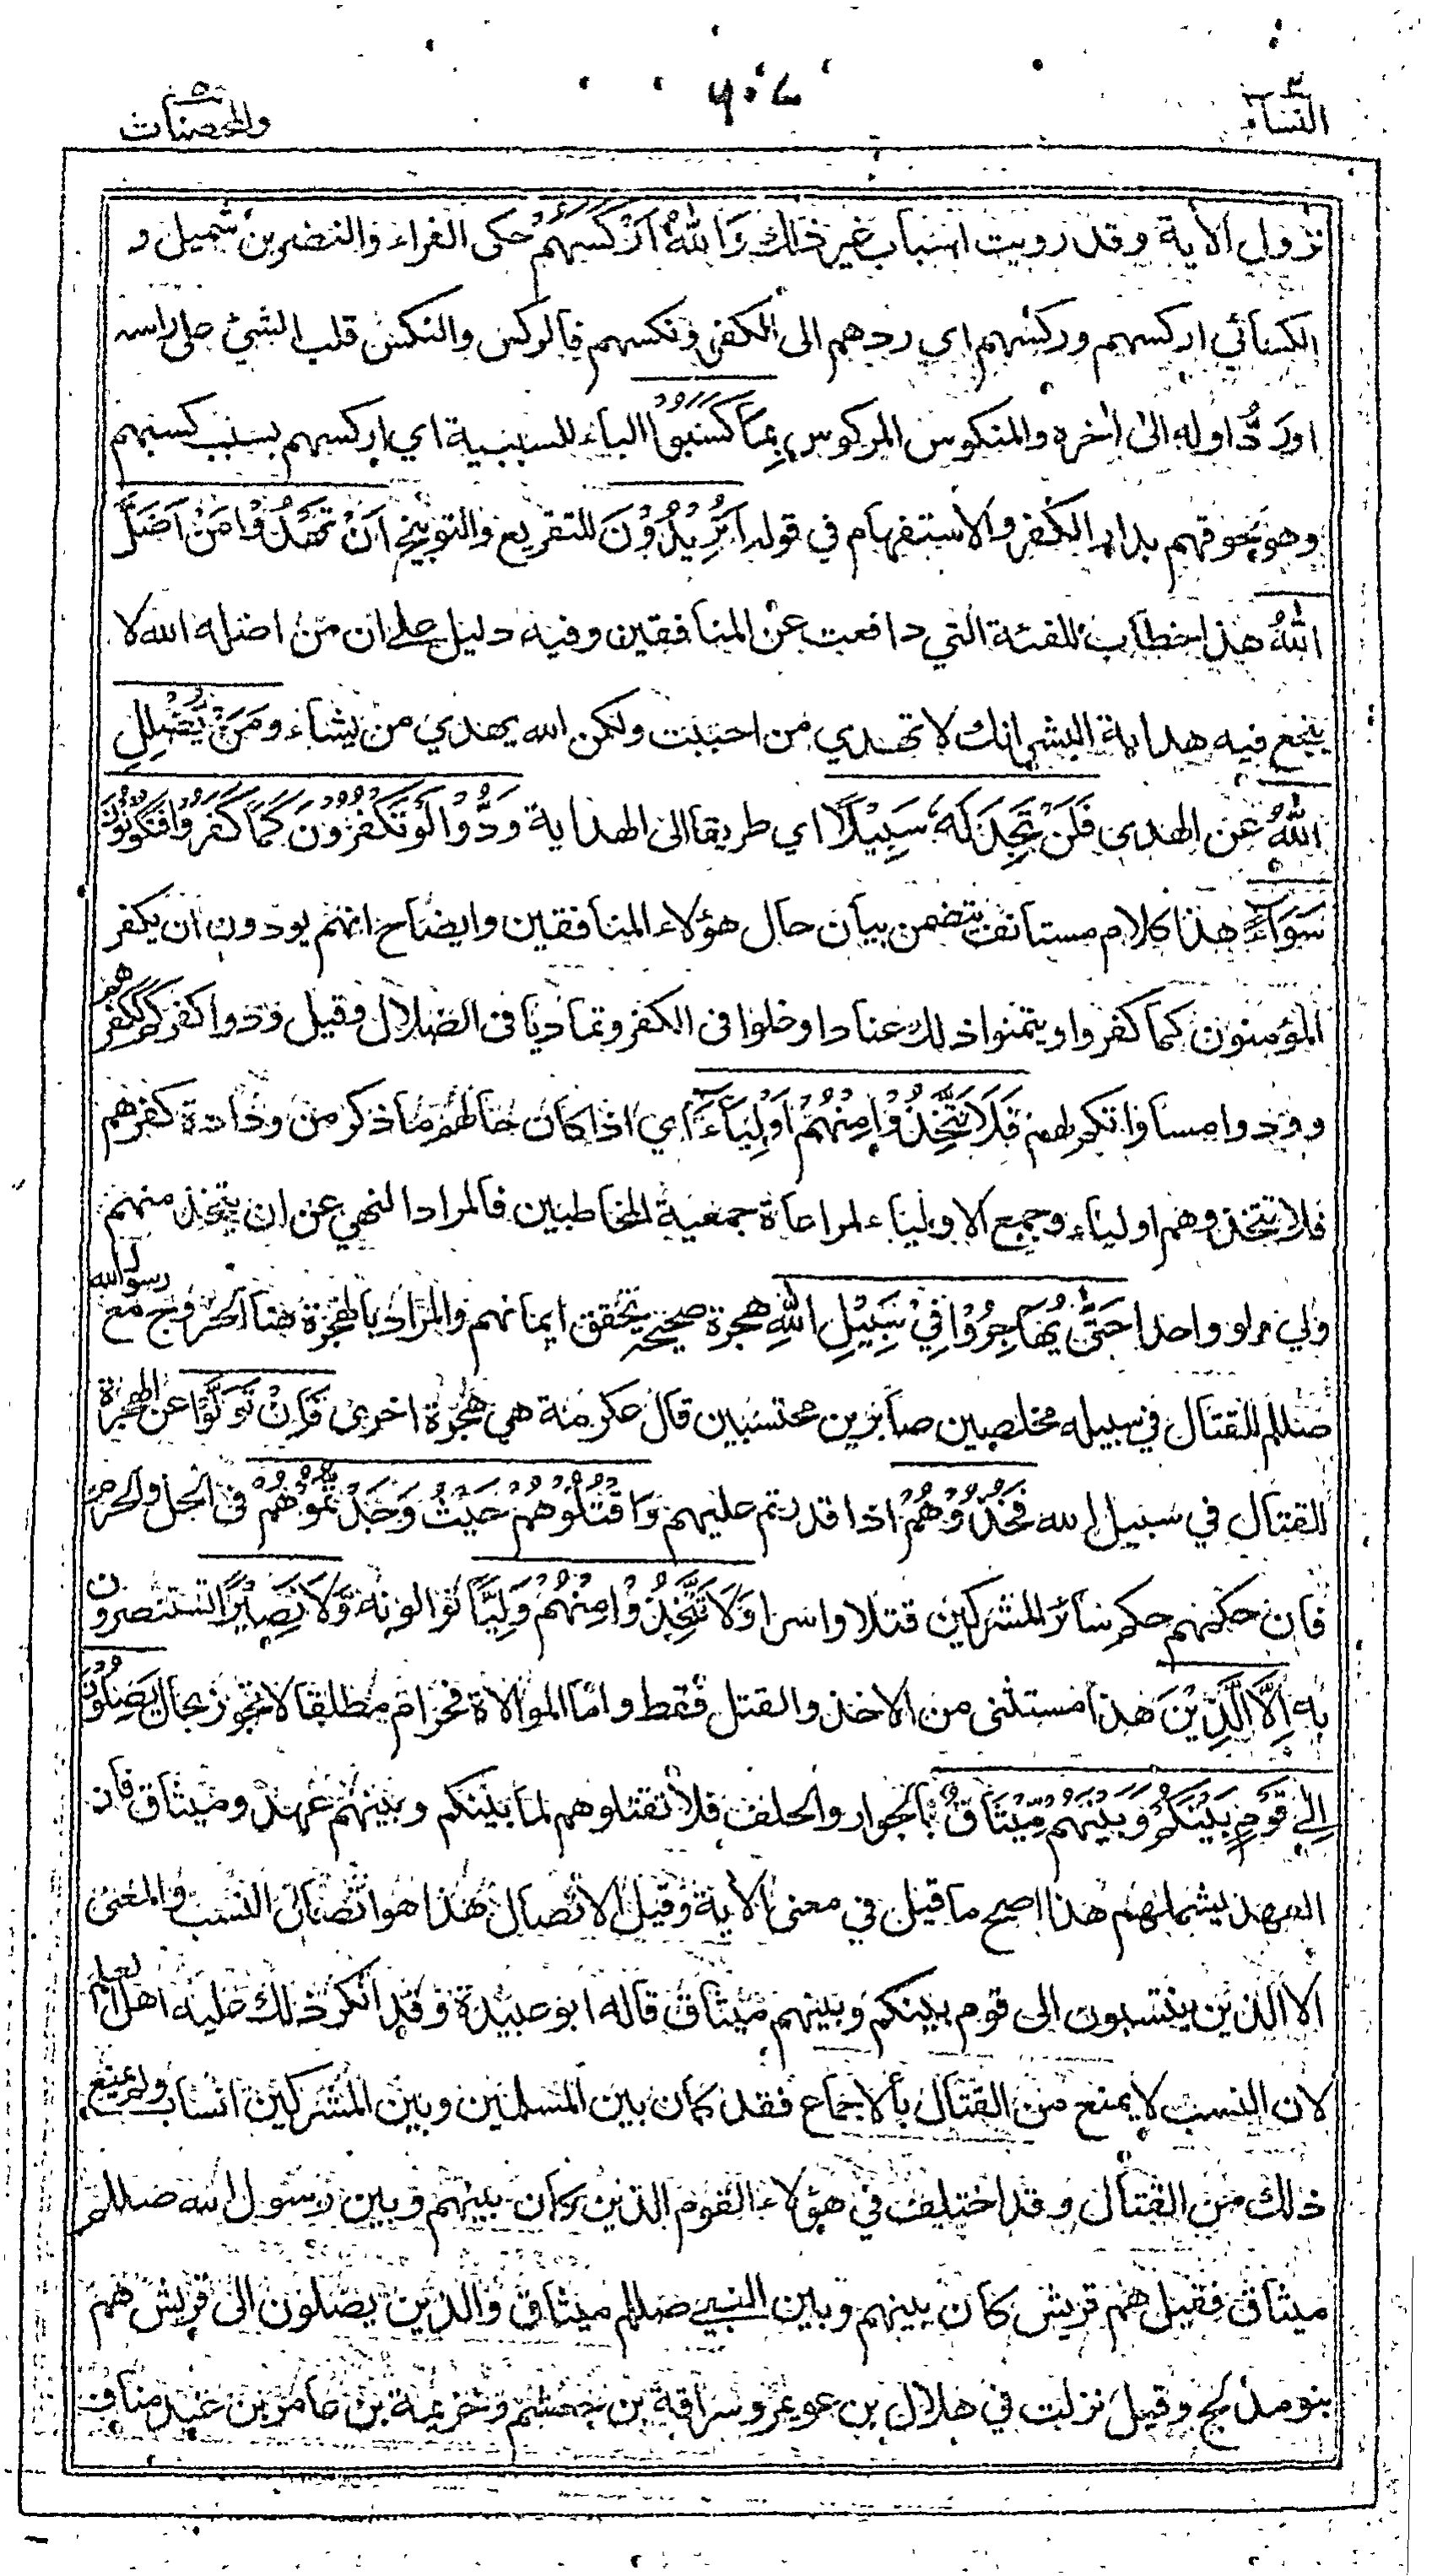 النساء ٤
٦٠٤
والمحصنات ٥
نزول الأية وقد رويت اسباب غير ذلك وَاللّٰهُ اَرْكَسَهُمْ حكى الفراء والنضر بن شميل و
الكسائي اركسهم وركسهم اي ردهم الى الكفر ونكسهم فالركس والنكس قلب الشئ على راسه
اورد اوله الى اخره والمنكوس المركوس بِمَا كَسَبُوا الباء للسببية اي اركسهم بسبب كسبهم
وهو لحوقهم بدار الكفر والاستفهام في قوله اَتُرِيْدُوْنَ للتقريع والتوبيخ اَنْ تَهْدُوْا مَنْ اَضَلَّ
اللّٰهُ هذا خطاب للفئة التي دافعت عن المنافقين وفيه دليل على ان من اضله الله لا
ينجع فيه هداية البشر انك لا تهدي من احببت ولكن الله يهدي من يشاء وَمَنْ يُّضْلِلِ
اللّٰهُ عن الهدى فَلَنْ تَجِدَ لَهٗ سَبِيْلًا اي طريقا الى الهداية وَدُّوْا لَوْ تَكْفُرُوْنَ كَمَا كَفَرُوْا فَتَكُوْنُوْنَ
سَوَآءً هذا كلام مستانف يتضمن بيان حال هؤلاء المنافقين وايضاح انهم يودون ان يكفر
المؤمنون كما كفروا ويتمنوا ذلك عنادا وغلوا في الكفر وتماديا في الضلال وقيل ودوا كفركم ككفرهم
وودوا مساواتكم لهم فَلَا تَتَّخِذُوْا مِنْهُمْ اَوْلِيَآءَ اي اذا كان حالهم ما ذكر من ودادة كفرهم
فلا تتخذوهم اولياء وجمع الاولياء لمراعاة جمعية المخاطبين فالمراد النهي عن ان يتخذ منهم
ولي ولو واحدا حَتّٰى يُهَاجِرُوْا فِيْ سَبِيْلِ اللّٰهِ هجرة صحيحة تحقق ايمانهم والمراد بالهجرة هنا الخروج مع رسول الله
صللم للقتال في سبيله مخلصين صابرين محتسبين قال عكرمة هي هجرة اخرى فَاِنْ تَوَلَّوْا عن الهجرة
القتال في سبيل الله فَخُذُوْهُمْ اذا قدرتم عليهم وَاقْتُلُوْهُمْ حَيْثُ وَجَدْتُّمُوْهُمْ في الحل والحرم
فان حكمهم حكم سائر المشركين قتلا واسرا وَلَا تَتَّخِذُوْا مِنْهُمْ وَلِيًّا توالونه وَّلَا نَصِيْرًا تستنصرون
به اِلَّا الَّذِيْنَ هذا مستثنى من الاخذ والقتل فقط واما الموالاة فحرام مطلقا لا تجوز بحال يَصِلُوْنَ
اِلٰى قَوْمٍ بَيْنَكُمْ وَبَيْنَهُمْ مِّيْثَاقٌ بالجوار والحلف فلا تقتلوهم لما بينكم وبينهم عهد وميثاق فان
العهد يشملهم هذا اصح ما قيل في معنى الأية وقيل الاتصال هذا هو اتصال النسب والمعنى
الا الذين ينتسبون الى قوم بينكم وبينهم ميثاق قاله ابو عبيدة وقد انكر ذلك عليه اهل العلم
لان النسب لا يمنع من القتال بالاجماع فقد كان بين المسلمين وبين المشركين انساب ولم يمنع
ذلك من القتال وقد اختلف في هؤلاء القوم الذين كان بينهم وبين رسول الله صللم
ميثاق فقيل هم قريش كان بينهم وبين النبي صللم ميثاق والذين يصلون الى قريش هم
بنو مدلج وقيل نزلت في هلال بن عويمر وسراقة بن جعشم وخزيمة بن عامر بن عبد مناف